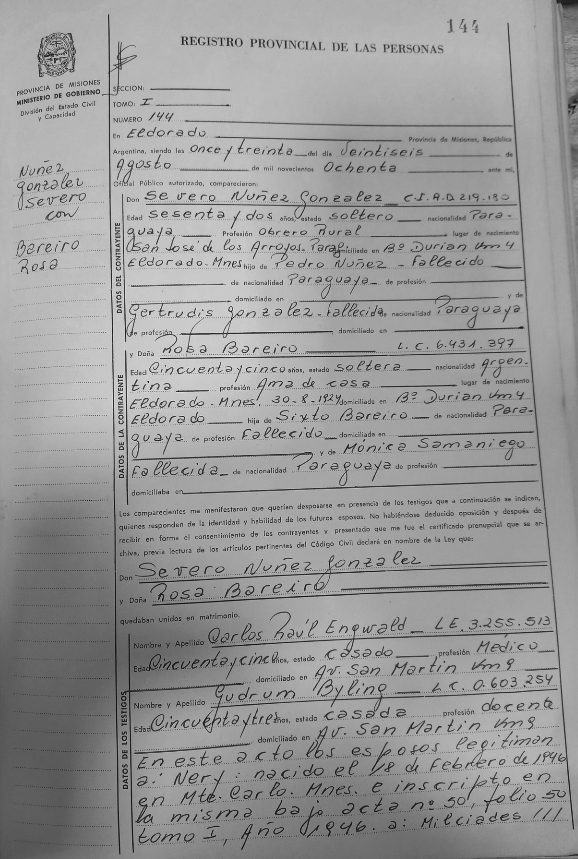 144
REGISTRO PROVINCIAL DE LAS PERSONAS
PROVINCIA DE MISIONES
MINISTERIO DE GOBIERNO
División del Estado Civil
y Capacidad
Nuñez
gonzalez
Severo
con
Bareiro
Rosa
SECCION:
TOMO: I
NUMERO 144
En Eldorado Provincia de Misiones, República
Argentina, siendo las Once y treinta del día Veintiseis de
Agosto de mil novecientos Ochenta ante mí,
Oficial Público autorizado, comparecieron:
DATOS DEL CONTRAYENTE
Don Severo Nuñez Gonzalez C.I.R.D 219.180
Edad Sesenta y dos años, estado soltero nacionalidad Para-
guaya Profesión Obrero Rural lugar de nacimiento
San José de los Arroyos-Parag. domiciliado en Bº Durian Km 4
Eldorado-Mnes hijo de Pedro Nuñez - Fallecido
de nacionalidad Paraguaya de profesión
domiciliado en y de
Gertrudis Gonzalez-Fallecida de nacionalidad Paraguaya
de profesión domiciliado en
DATOS DE LA CONTRAYENTE
y Doña Rosa Bareiro L.C. 6.431.397
Edad Cincuenta y cinco años, estado soltera nacionalidad Argen-
tina profesión Ama de casa lugar de nacimiento
Eldorado-Mnes. 30-8-1924 domiciliado en Bº Durian Km 4
Eldorado hija de Sixto Bareiro de nacionalidad Para-
guaya de profesión Fallecido domiciliado en
y de Mónica Samaniego
Fallecida de nacionalidad Paraguaya de profesión
domiciliaba en
Los comparecientes me manifestaron que querían desposarse en presencia de los testigos que a continuación se indican,
quienes responden de la identidad y habilidad de los futuros esposos. No habiéndose deducido oposición y después de
recibir en forma el consentimiento de los contrayentes y presentado que me fue el certificado prenupcial que se ar-
chiva, previa lectura de los artículos pertinentes del Código Civil declaré en nombre de la Ley que:
Don Severo Nuñez Gonzalez
y Doña Rosa Bareiro
quedaban unidos en matrimonio.
DATOS DE LOS TESTIGOS
Nombre y Apellido Carlos Raúl Engwald LE. 3.255.513
Edad Cincuenta y cinco años, estado casado profesión Médico
domiciliado en Av. San Martin Km 9
Nombre y Apellido Gudrum Byling L.C. 0.603.254
Edad Cincuenta y tres años, estado casada profesión docente
domiciliado en Av. San Martin Km 9
En este acto los esposos legitiman
a: Nery: nacido el 18 de Febrero de 1946
en Mte. Carlo. Mnes. e inscripto en
la misma bajo acta nº 50, folio 50
tomo I, Año 1946. a: Milciades ///